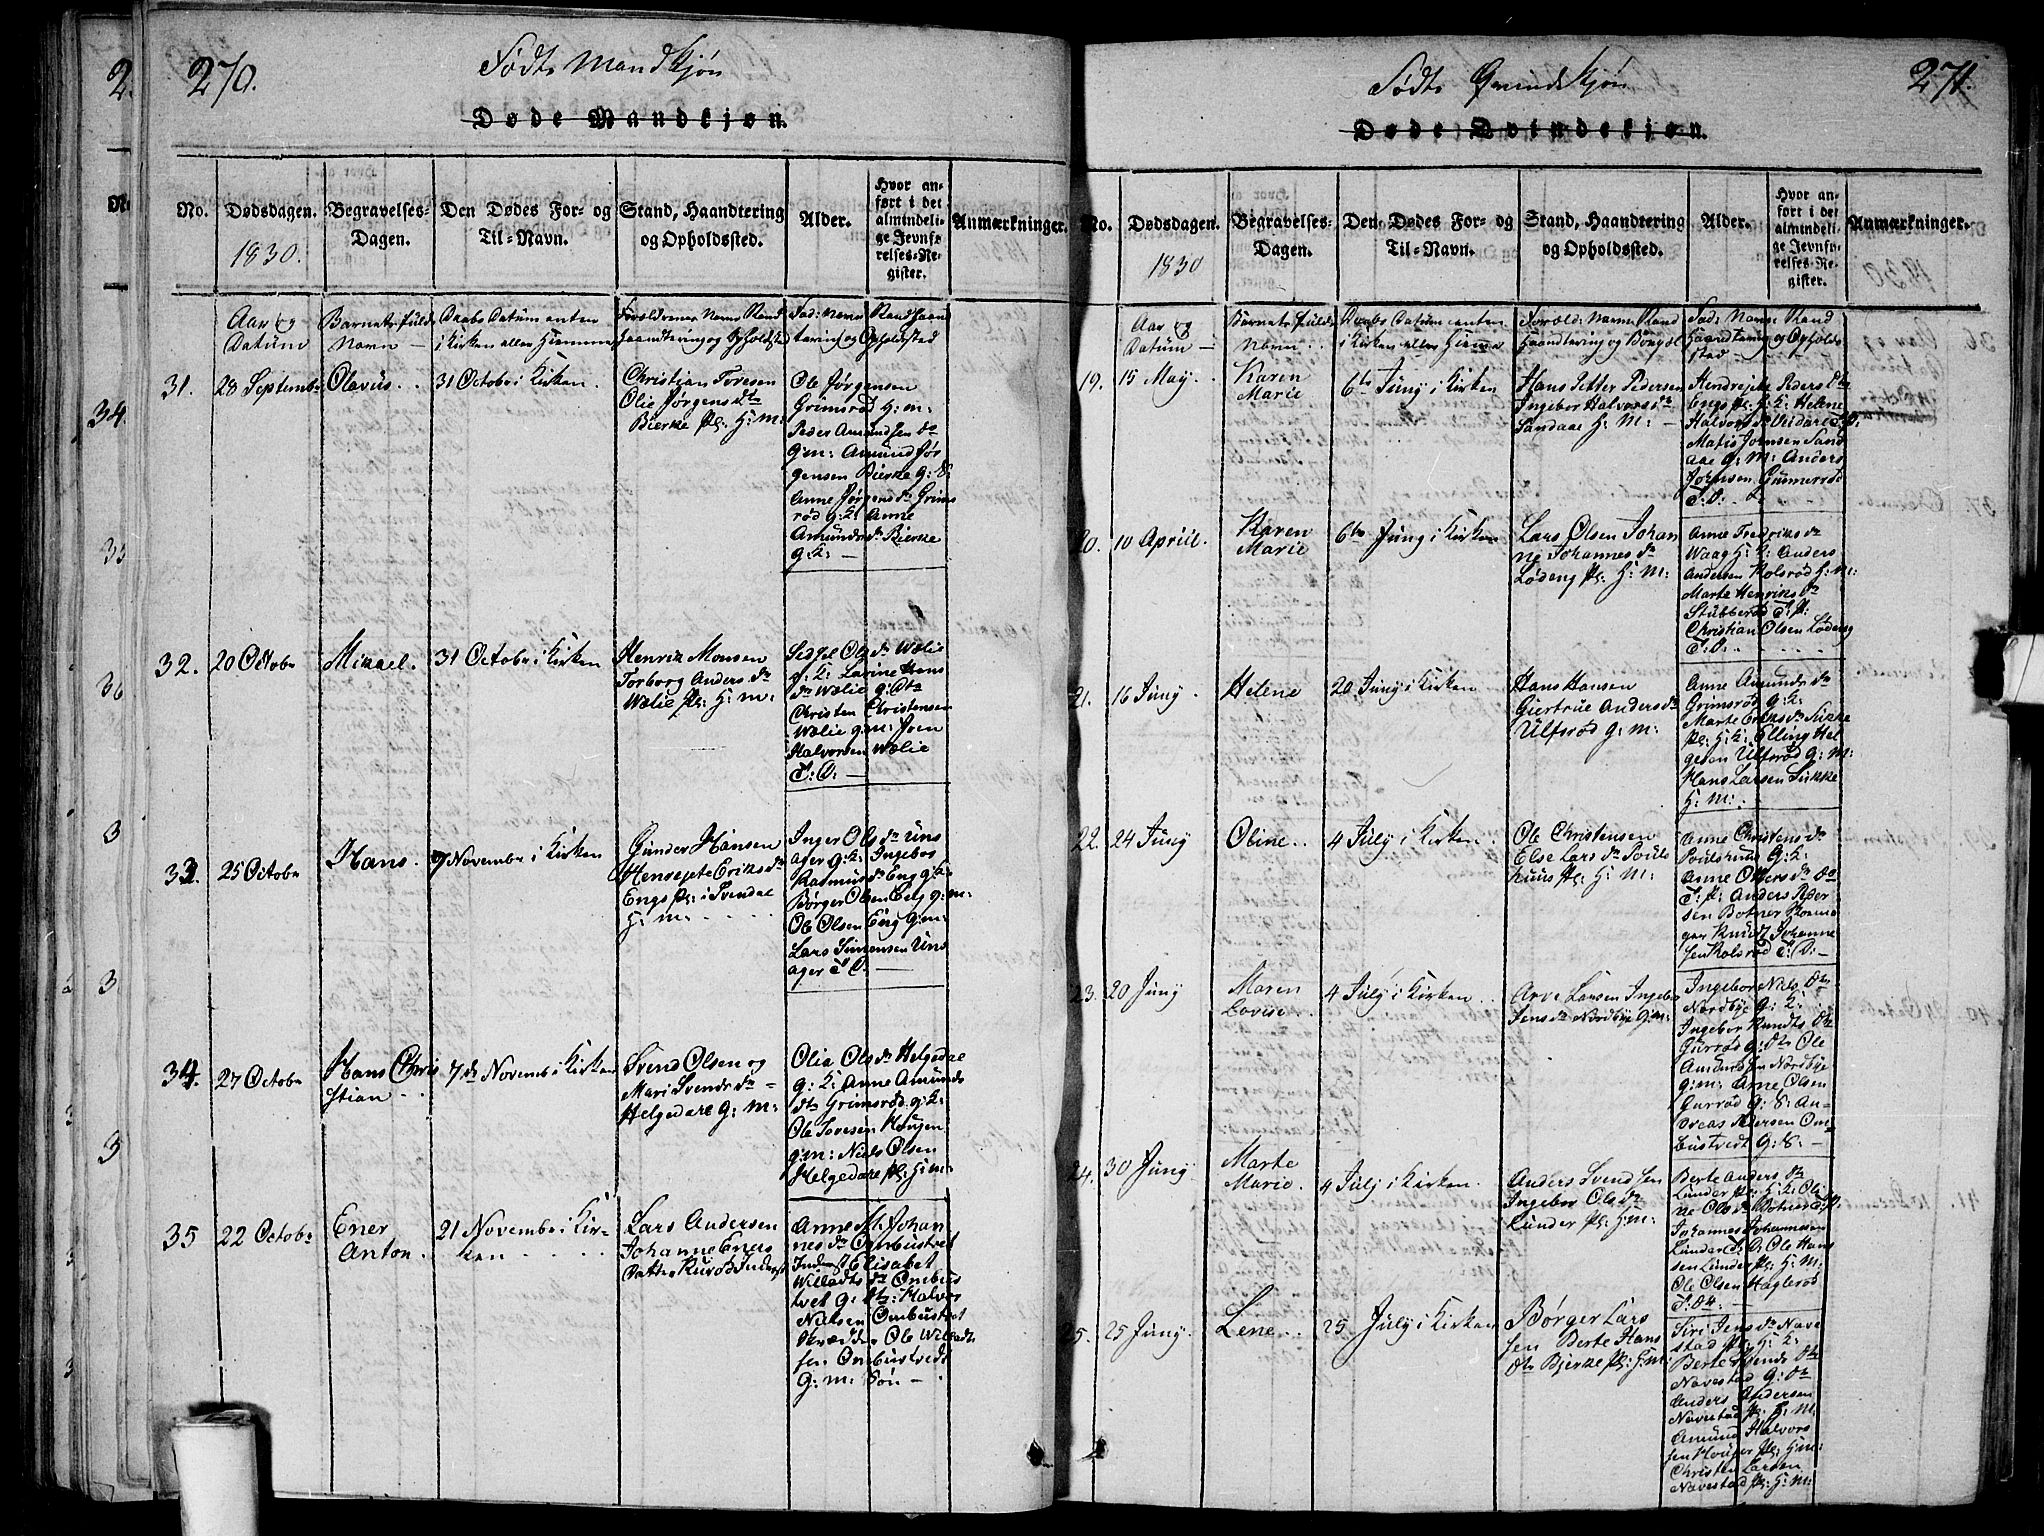 270.
Født Mandkjøn
Døde Mandkjøn.
No.
Dødsdagen.
1830.
Begravelses-
Dagen.
Den Dødes For- og
Til-Navn.
Stand, Haandtering
og Opholdssted.
Alder.
Hvor an-
ført i det
almindeli-
ge Jevnfø-
relses-Re-
gister.
Anmærkninger.
Aar og
Datum
Barnets fulde
Navn
Daabs Datum enten
i Kirken eller Hiemme
Forældrenes Navne Stand
haandtering og Opholdsted
Fad: Navne Stand haand
tering og Opholdsted
31.
28 Septembr
Olavus
31 Octobr i Kirken
Christian Toresen
Olie Jørgens dtr
Bierke pl. H: M:
Ole Jørgensen
Grimsrød H: m:
Peder Amundsen
G: m: Amund Jør
gensen Bierke G: S:
Anne Jørgens dr Grims
rød g: K: Anne
Amunds dr Bierke
g: K: —
32.
20 Octobr
Mikael.
31 Octobr i Kirken
Henrik Monsen
Torborg Anders dr
Wælie pl: H: m:
Sidsel Ols dr Wælie
g: K: Lavine Hans
dr Wælie g: Dtr
Christen Christensen
Wælie g: m: Joen
Halvorsen Wælie
T: D: —
33.
25 Octobr
Hans.
7 Novembr i Kirken
Gunder Hansen
Henrejete Eriks dr
Engs pl: i Svendal
H: m.
Inger Ols dr Uns
ager g: K: Ingebor
Rasmus dr Eng g: K:
Børger Olsen Eng g: m:
Ole Olsen Eng g: m:
Lars Simensen Uns
ager T D: —
34.
27 Octobr
Hans Chris
stian
7de Novembr i Kirken
Svend Olsen og
Mari Svends dr
Helgedare G: M:
Olia Ols dr Helgedal
g: K: Anne Amunds
dtr Grimsrød g: K:
Ole Toresen Hougen
g: m: Niels Olsen
Helgedare pl: H: m:
35
22 Octobr
Ener
Anton
21 Novembr i Kir-
ken
Lars Andersen
Johanne Eners
Datter Kurød Inderst
Anne M. Johan
nes dr Ombustvet
Inderst Elisabet
Willadts dr Ombus
tvet G: Dtr: Halvor
Nielsen Ombustvet
Skrædder Ole Willadt
sen Ombustvedt
G: m: Søn —
271.
Født Qvindekjøn
Døde Qvindekjøn.
No.
Dødsdagen.
1830
Begravelses-
Dagen.
Den Dødes For- og
Til-Navn.
Stand, Haandtering
og Opholdssted.
Alder.
Hvor an-
ført i det
almindeli-
ge Jevnfø-
relses-Re-
gister.
Anmærkninger.
Aar og
Datum
Barnets fulde
Navn
Daabs Datum enten
i Kirken eller Hiemme
Foræld: Navne Stand
Haandtering og
Fad: Navne Stand
Haandtering og Opholds
sted
19.
15 May
Karen
Marie
6te Juny i Kirken
Hans Petter Pedersen
Ingebor Halvors dr
Sandaae H: M:
Hendrejete Peders dtr
Engs pl: H: K: Helene
Halvors dr
Matis Jornsen Sand
aae G: M: Anders
Johnsen Gunnerrød
T: D:
20.
10 Apriil.
Karen
Marie
6te Juny i Kirken
Lars Olsen Johan
ny Johannes dr
Lødeng pl: H: M:
Anne Fredriks dr
Waag H: K: Anders
Andersen Rolsrød H: M:
Marte Henriks dr
Stubberød T: P:
Christian Olsen Lødeng
T: D:
21.
16 Juny
Helene
20 Juny i Kirken
Hans Hansen
Giertrue Anders dr
Ulfsrød g: m:
Anne Amunds dr
Grimsrød g: K:
Marte Eriks dr Sikke
pl: H: K: Elling Hel
gesen Ulfsrød G: M:
Hans Larsen Sikke
H: M:
22.
24 Juny
Oline
4 July i Kirken
Ole Christensen
Else Lars dr Pouls
huus pl: H: M:
Anne Christens dr
Poulshuus G: K:
Anne Otters dr
T: P: Anders Peder
sen Botner
Knudt Johanne
sen Rolsrød T: D:
23.
20 Juny
Maren
Lovise
4 July i Kirken
Arve Larsen Ingebor
Jens dr Nordbye G: m:
Ingebor Niels Dtr
Nordbye G: K:
Ingebor Knudts Dtr
Gurrød g: dtr Ole
Amundsen Nordbye
g: m: Arne Olsen
Gurrød G: S: An-
dreas Pedersen Om-
bustvedt G: S: —
24.
30 Juny
Marte
Marie
4 July i Kirken.
Anders Svendsen
Ingebor Ols dr
Lunder pl: H: M:
Berte Anders Dtr
Lunder pl: H: K: Oli
ne Ols dr Botner T: P.
Johannes Johannesen
Lunder T: D: Ole Hans
sen Lunder pl: H: M:
Ole Olsen Haglerød
T: D: —
25.
25 Juny
Lene
25 July i Kirken
Børger Lars
sen Berte Hans
Dtr Bjerke pl: H: M:
Siri Jens dr Nave
stad pl: H: K:
Berte Svends Dtr
Navestad G: Dtr
Anders Andersen
Navestad pl: H: M
Amund Halvors
sen Houger pl: H: M:
Christen Larsen
Navestad pl: H: M: